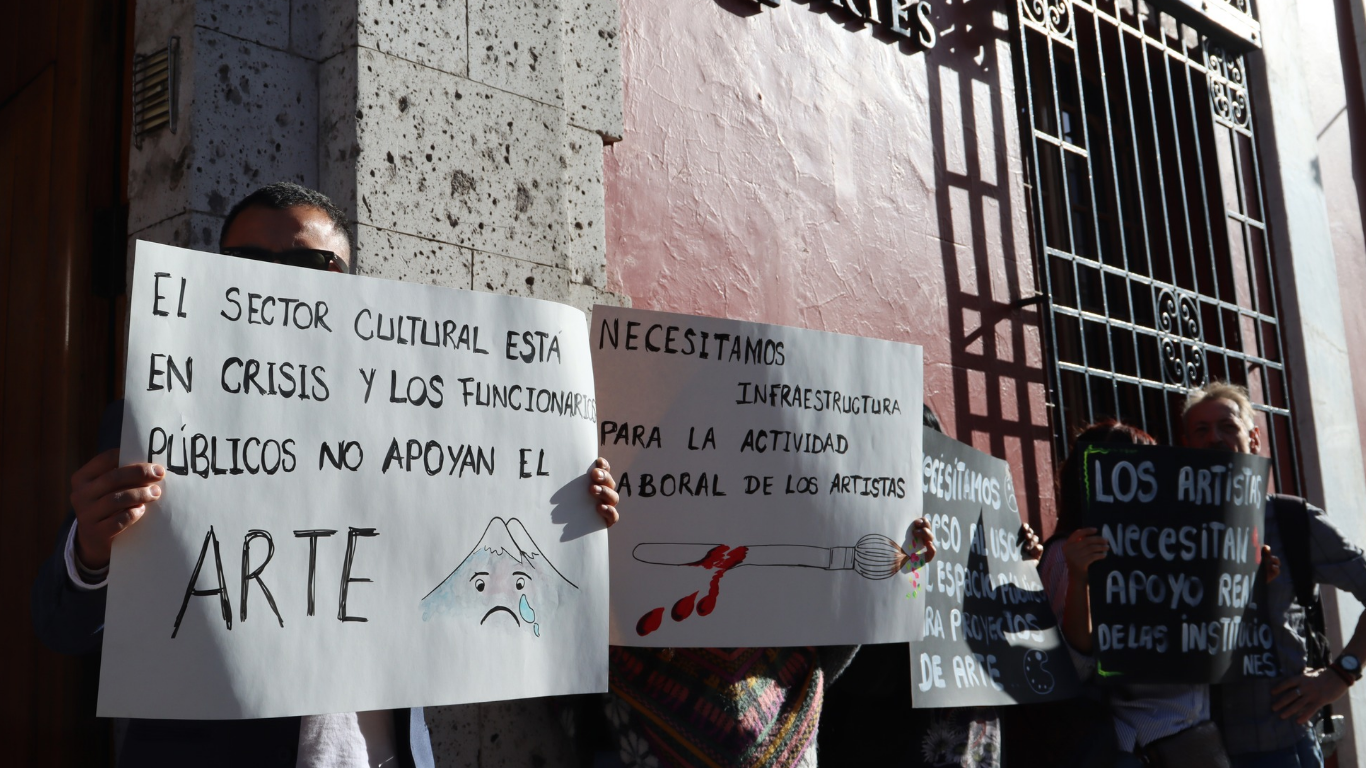 EL SECTOR CULTURAL ESTÁ
EN CRISIS Y LOS FUNCIONARIOS
PÚBLICOS NO APOYAN EL
ARTE
NECESITAMOS
INFRAESTRUCTURA
PARA LA ACTIVIDAD
LABORAL DE LOS ARTISTAS
NECESITAMOS
AL USO
ESPACIO PÚBLICO
PROYECTOS
DE ARTE
LOS ARTISTAS
NECESITAN
APOYO REAL
DE LAS INSTITUCIO
NES